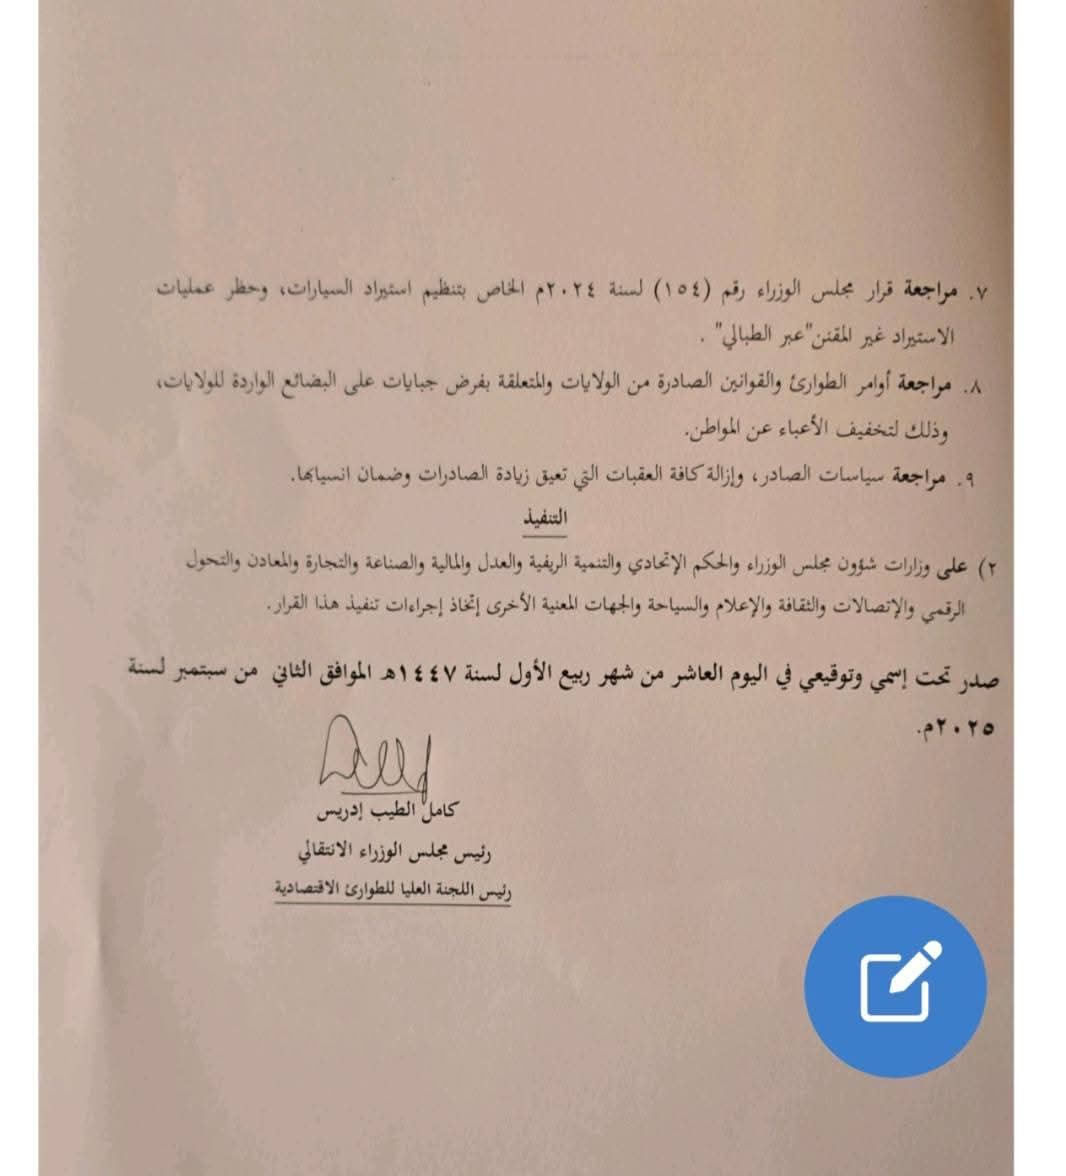 ٧. مراجعة قرار مجلس الوزراء رقم (١٥٤) لسنة ٢٠٢٤م الخاص بتنظيم استيراد السيارات، وحظر عمليات
الاستيراد غير المقنن"عبر الطبالي" .
٨. مراجعة أوامر الطوارئ والقوانين الصادرة من الولايات والمتعلقة بفرض جبايات على البضائع الواردة للولايات،
وذلك لتخفيف الأعباء عن المواطن.
٩. مراجعة سياسات الصادر، وإزالة كافة العقبات التي تعيق زيادة الصادرات وضمان انسيابها.
التنفيذ
٢) على وزارات شؤون مجلس الوزراء والحكم الإتحادي والتنمية الريفية والعدل والمالية والصناعة والتجارة والمعادن والتحول
الرقمي والإتصالات والثقافة والإعلام والسياحة والجهات المعنية الأخرى إتخاذ إجراءات تنفيذ هذا القرار.
صدر تحت إسمي وتوقيعي في اليوم العاشر من شهر ربيع الأول لسنة ١٤٤٧هـ الموافق الثاني من سبتمبر لسنة
٢٠٢٥م.
كامل الطيب إدريس
رئيس مجلس الوزراء الانتقالي
رئيس اللجنة العليا للطوارئ الاقتصادية